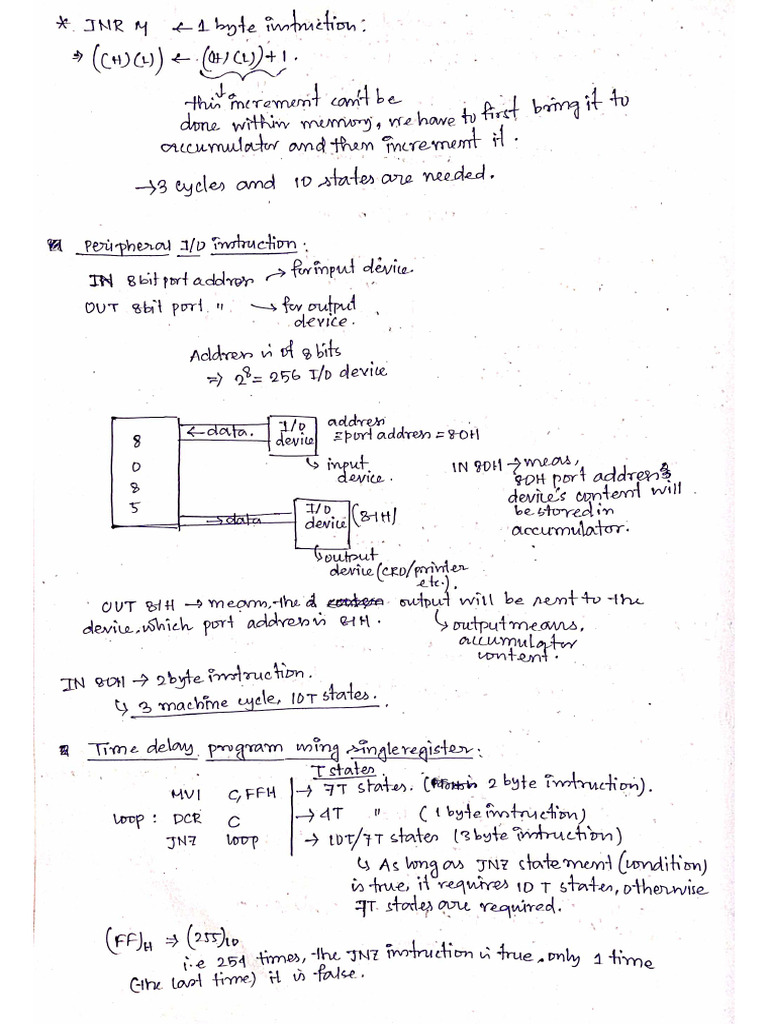 * INR M ← 1 byte instruction:
⇒ ((H)(L)) ← ((H)(L))+1.
this increment can't be
done within memory, we have to first bring it to
accumulator and then increment it.
→ 3 cycles and 10 states are needed.
Peripheral I/O instruction:
IN 8bit port address → for input device.
OUT 8bit port " → for output
device.
Address is of 8 bits
⇒ 2^8 = 256 I/O device
8
0
8
5
← data.
I/O
device
address
= port address = 80H
input
device.
IN 80H → meas,
80H port address
device's content will
be stored in
accumulator.
→ data
I/O
device
(81H)
output
device (CRO/printer
etc.).
OUT 81H → means, the output will be sent to the
device, which port address is 81H.
output means,
accumulator
content.
IN 80H → 2 byte instruction.
3 machine cycle, 10T states.
Time delay program using single register:
T states
MVI C, FFH → 7T states. ( 2 byte instruction).
Loop: DCR C → 4T " (1 byte instruction)
JNZ Loop → 10T/7T states (3 byte instruction)
As long as JNZ statement (condition)
is true, it requires 10 T states, otherwise
7T states are required.
(FF)H ⇒ (255)10
i.e 254 times, the JNZ instruction is true, only 1 time
(the last time) it is false.